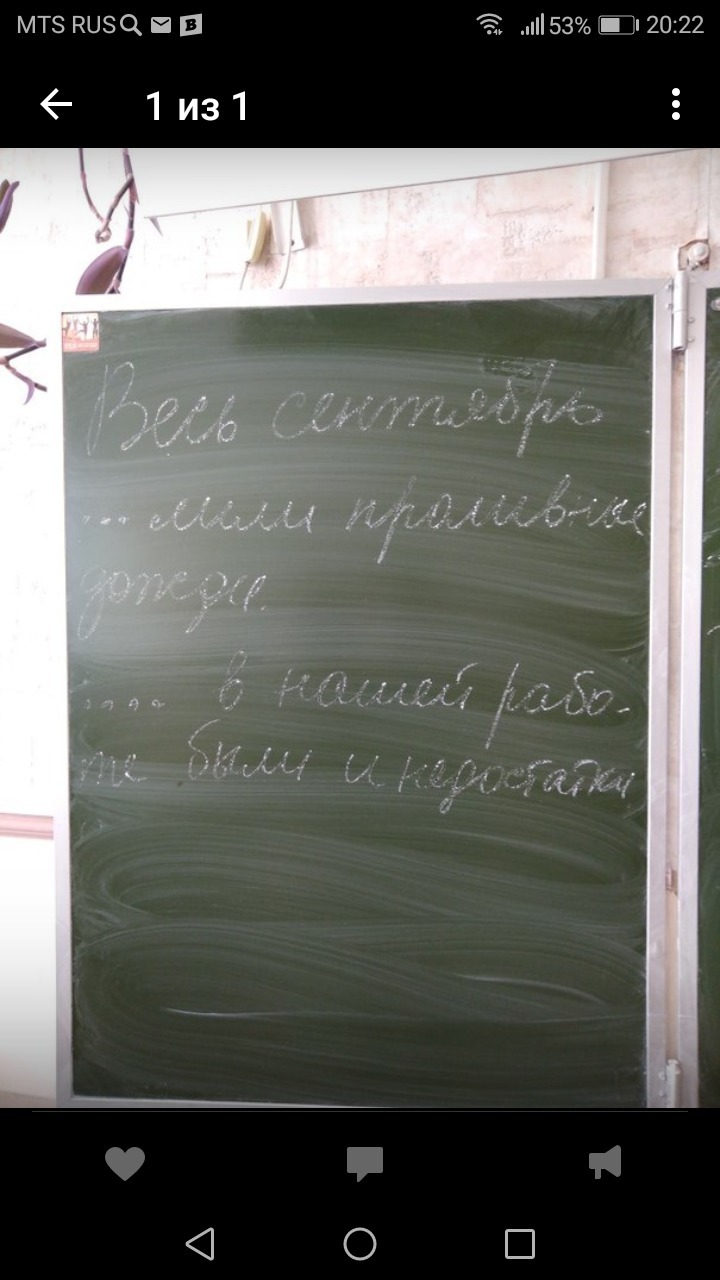 MTS RUS 53% 20:22
1 из 1
Весь сентябрь
... лили проливные
дожди.
.... в нашей рабо-
те были и недостатки